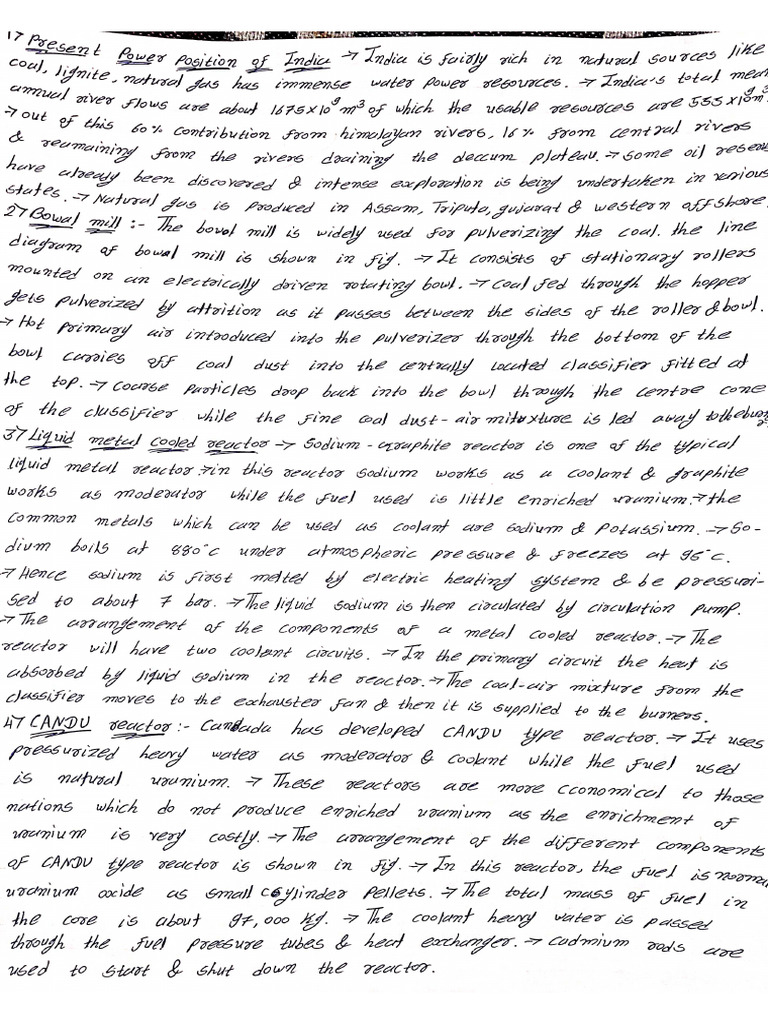 17 Present Power Position of India → India is fairly rich in natural sources like
coal, lignite, natural gas has immense water power resources. → India's total mean
annual river flows are about 1675×10⁹m³ of which the usable resources are 555×10⁹m³
→ out of this 60% contribution from himalayan rivers, 16% from central rivers
& reamaining from the rivers draining the deccum plateau. → some oil reserv
have already been discovered & intense exploration is being undertaken in various
states. → Natural gas is produced in Assam, Tripula, gujarat & western offshore.
27 Bowal mill :- The bowl mill is widely used for pulverizing the coal. the line
diagram of bowal mill is shown in fig. → It consists of stationary rollers
mounted on an electrically driven rotating bowl. → coal fed through the hopper
gets pulverized by attrition as it passes between the sides of the roller & bowl.
→ Hot primary air introduced into the pulverizer through the bottom of the
bowl carries off coal dust into the centrally located classifier fitted at
the top. → course particles drop back into the bowl through the centre cone
of the classifier while the fine coal dust-air mixture is led away to the burn
37 Liquid metal cooled reactor → Sodium-graphite reactor is one of the typical
liquid metal reactor → in this reactor sodium works as a coolant & graphite
works as moderator while the fuel used is little enriched uranium. → the
common metals which can be used as coolant are sodium & potassium. → So-
dium boils at 880°c under atmospheric pressure & freezes at 95°c.
→ Hence sodium is first melted by electric heating system & be pressuri-
sed to about 7 bar. → The liquid sodium is then circulated by circulation pump.
→ The arrangement of the components of a metal cooled reactor. → The
reactor will have two coolant circuits. → In the primary circuit the heat is
absorbed by liquid sodium in the reactor. → The coal-air mixture from the
classifier moves to the exhauster fan & then it is supplied to the burners.
47 CANDU reactor :- Canada has developed CANDU type reactor. → It uses
pressurized heavy water as moderator & coolant while the fuel used
is natural uranium. → These reactors are more economical to those
nations which do not produce enriched uranium as the enrichment of
uranium is very costly. → The arrangement of the different components
of CANDU type reactor is shown in fig. → In this reactor, the fuel is norma
uranium oxide as small cylinder pellets. → The total mass of fuel in
the core is about 97,000 kg. → The coolant heavy water is passed
through the fuel pressure tubes & heat exchanger. → cadmium rods are
used to start & shut down the reactor.